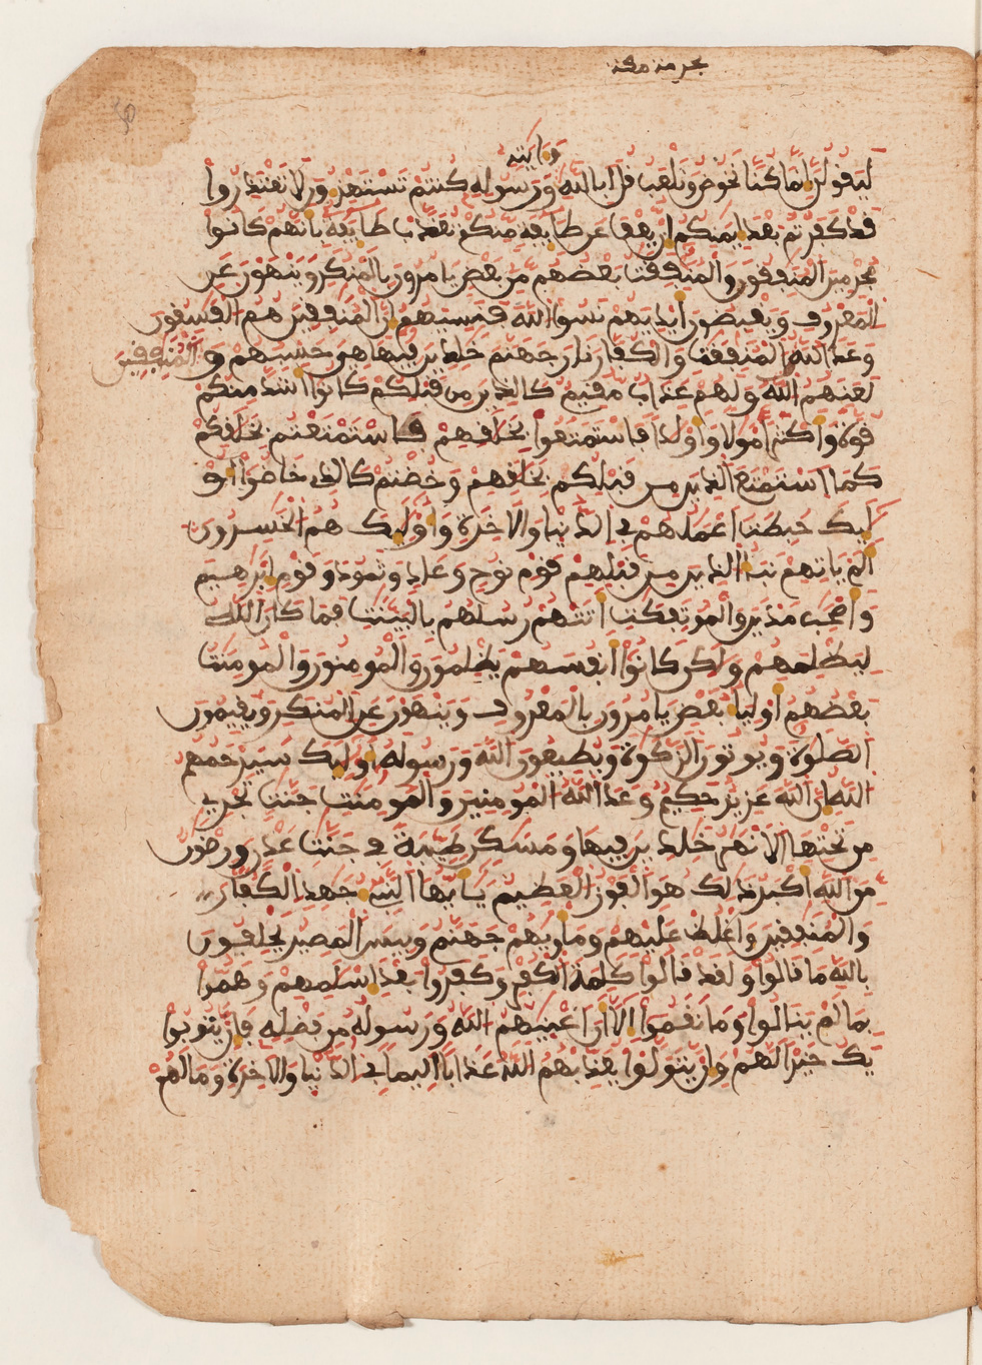 وءايته
ليقولن انما كنا نخوض ونلعب قل ابالله ورسوله كنتم تستهزءون لا تعتذروا
قد كفرتم بعد ايمنكم ان يعف عن طايفة منكم تعذب طايفة بانهم كانوا
مجرمين المنفقون والمنفقت بعضهم من بعض يامرون بالمنكر وينهون عن
المعروف ويقبضون ايديهم نسوا الله فنسيهم ان المنفقين هم الفسقون
وعد الله المنفقين والمنفقت والكفار نار جهنم خلدين فيها هي حسبهم و
لعنهم الله ولهم عذاب مقيم كالذين من قبلكم كانوا اشد منكم
قوة واكثر امولا واولدا فاستمتعوا بخلقهم فاستمتعتم بخلقكم
كما استمتع الذين من قبلكم بخلقهم وخضتم كالذي خاضوا او
ليك حبطت اعملهم في الدنيا والاخرة واوليك هم الخسرون
الم ياتهم نبا الذين من قبلهم قوم نوح وعاد وثمود وقوم ابرهيم
واصحب مدين والموتفكت اتتهم رسلهم بالبينت فما كان الله
ليظلمهم ولكن كانوا انفسهم يظلمون والمومنون والمومنت
بعضهم اوليا بعض يامرون بالمعروف وينهون عن المنكر ويقيمون
الصلوة ويوتون الزكوة ويطيعون الله ورسوله اوليك سيرحمهم
الله ان الله عزيز حكيم وعد الله المومنين والمومنت جنت تجري
من تحتها الانهر خلدين فيها ومسكن طيبة في جنت عدن ورضون
من الله اكبر ذلك هو الفوز العظيم يايها النبي جهد الكفار
والمنفقين واغلظ عليهم وماويهم جهنم وبيس المصير يحلفون
بالله ما قالوا ولقد قالوا كلمة الكفر وكفروا بعد اسلمهم وهموا
بما لم ينالوا وما نقموا الا ان اغنيهم الله ورسوله من فضله فان يتوبوا
يك خيرا لهم وان يتولوا يعذبهم الله عذابا اليما في الدنيا والاخرة وما لهم